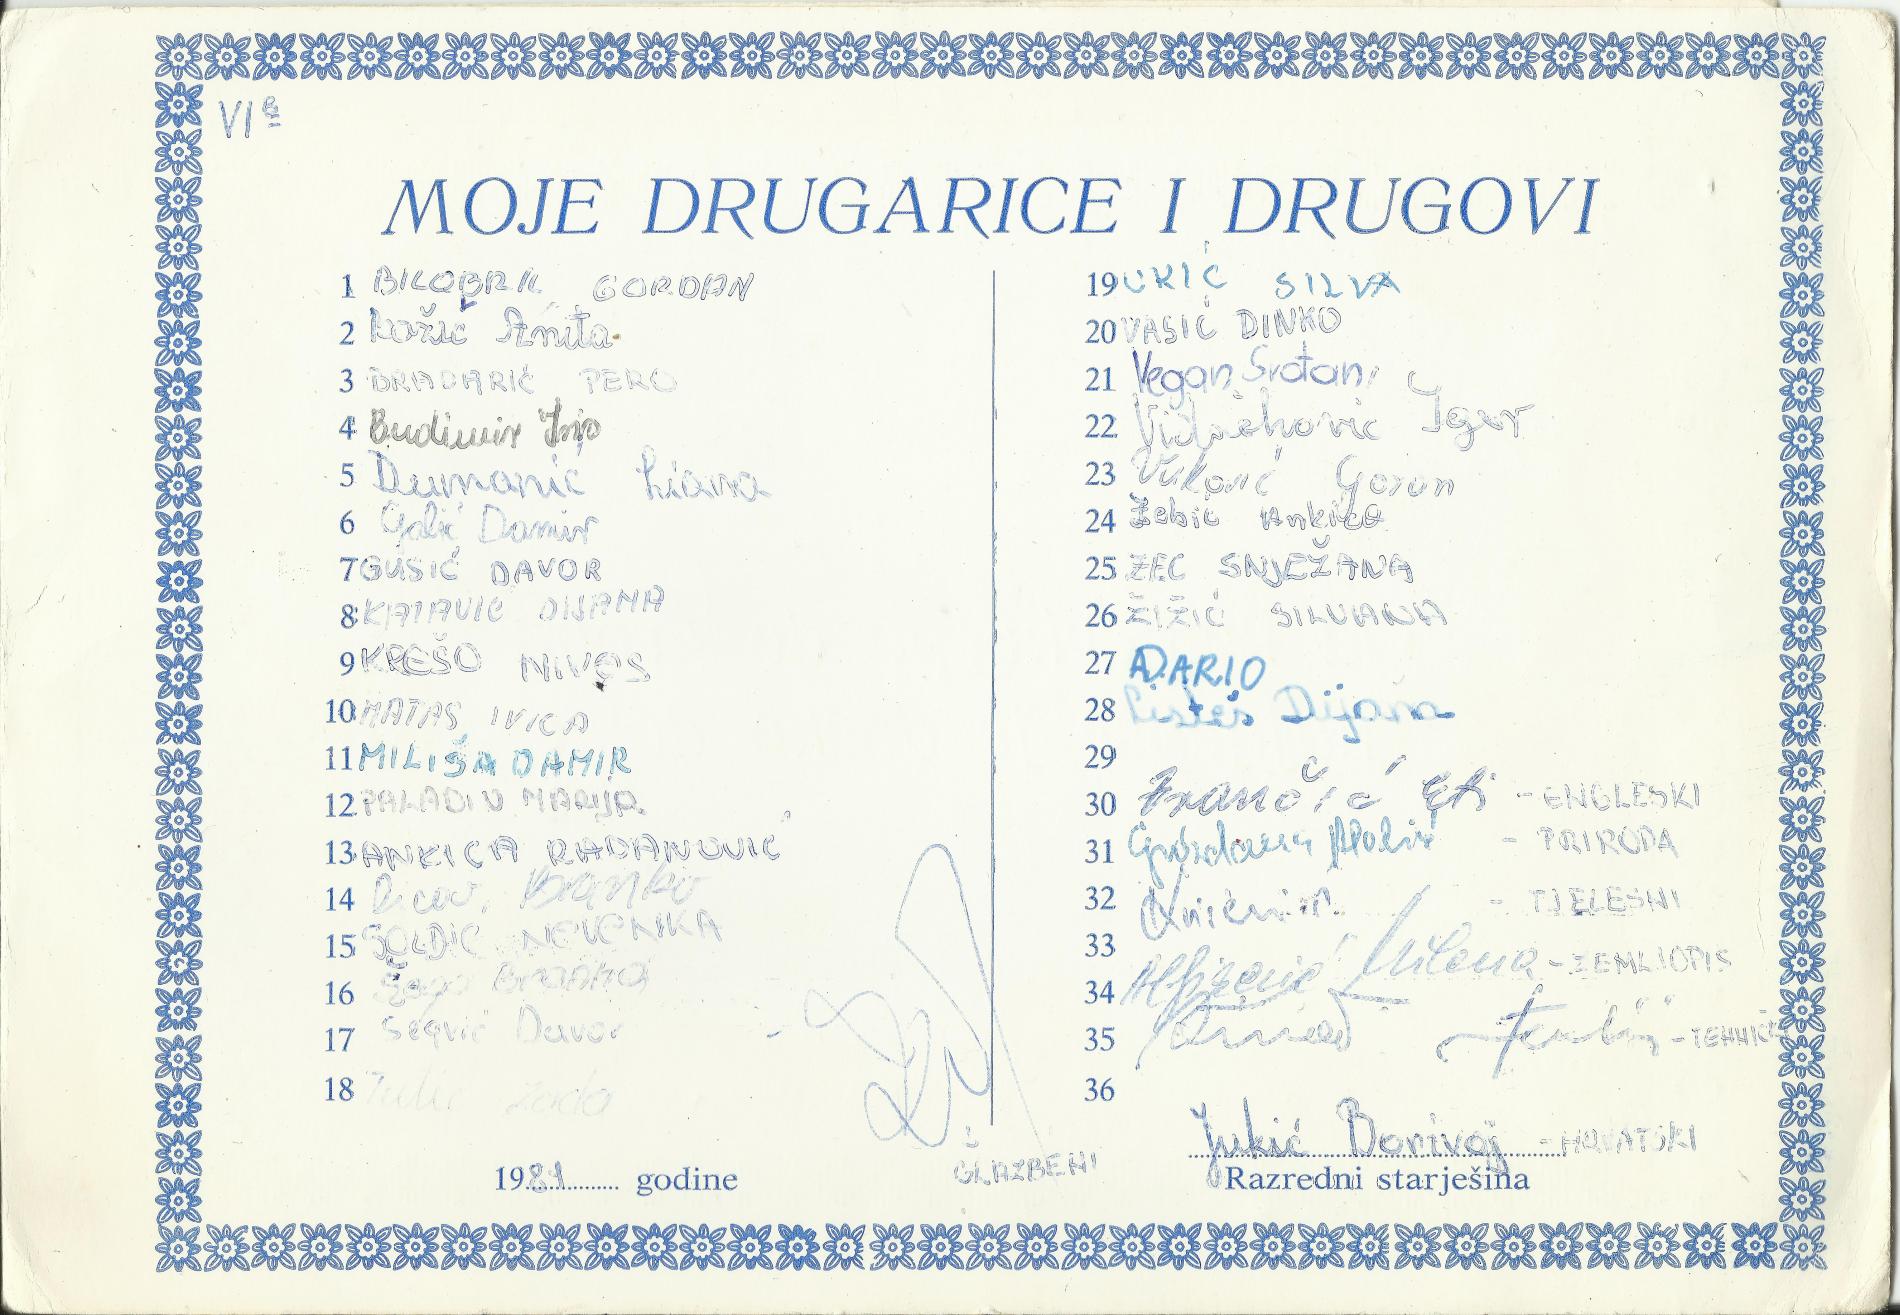 VI B
MOJE DRUGARICE I DRUGOVI
1 BILOBRK GORDAN
2 Božić Anita
3 BRADARIĆ PERO
4 Budimir Ivo
5 Dumanić Liana
6 Galić Damir
7 GUSIĆ DAVOR
8 KATAVIĆ DIJANA
9 KREŠO NIVES
10 MATAS IVICA
11 MILIŠA DAMIR
12 PALADIN MARIJA
13 ANKICA RADANOVIĆ
14 Branko
15 ŠOLDIĆ NEVENKA
16 Šego Branka
17 Segvić Davor
18
19 UKIĆ SILVA
20 VASIĆ DINKO
21 Vegan Srđan
22 Vidačković Igor
23 Vuković Goran
24 Žebić Ankica
25 ZEC SNJEŽANA
26 ŽIŽIĆ SILVANA
27 DARIO
28 Listeš Dijana
29
30 Ivančić - ENGLESKI
31 Gvozdana - PRIRODA
32 - TJELESNI
33
34 Milena - ZEMLJOPIS
35 - TEHNIČKI
36
Jukić Borivoj - HRVATSKI
Razredni starješina
1981 godine
GLAZBENI